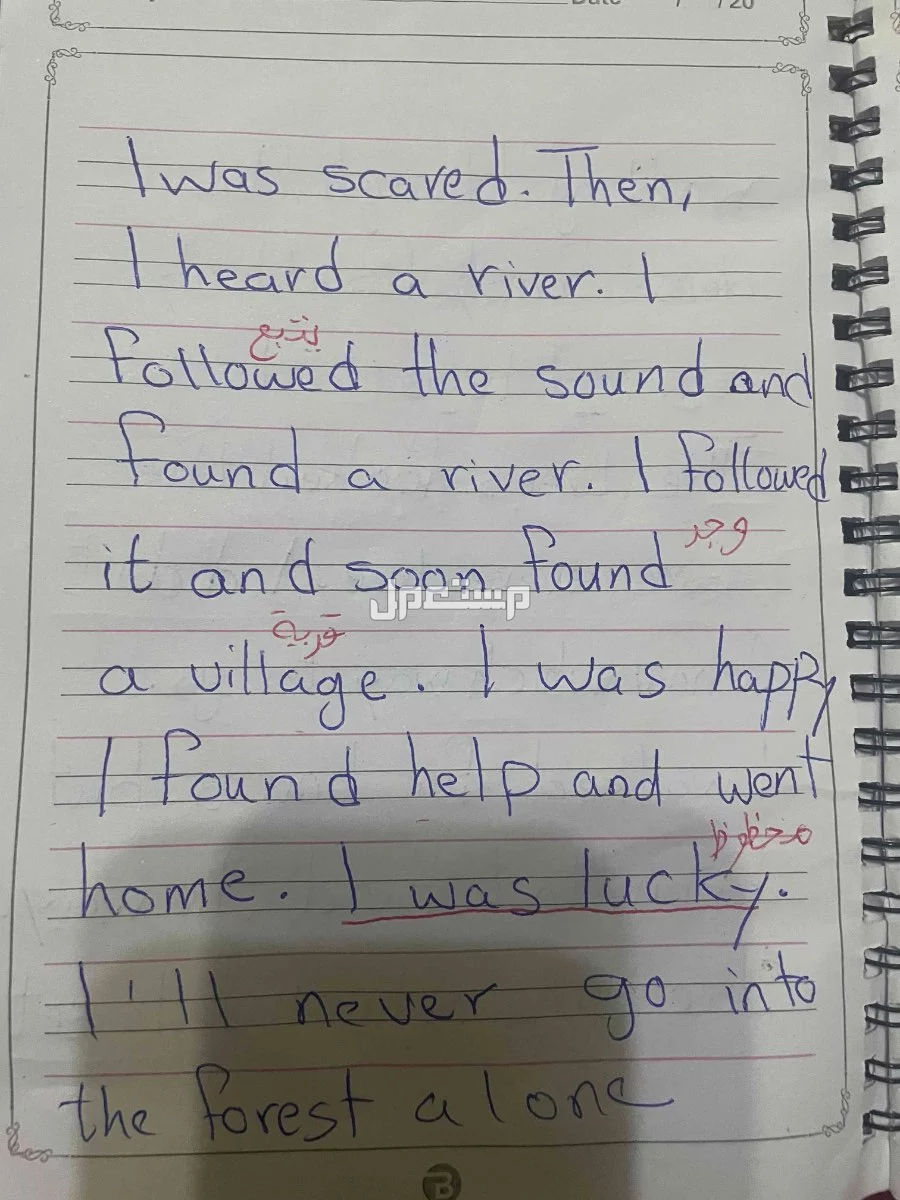 Date / /20
I was scared. Then,
I heard a river. I
يتبع
followed the sound and
found a river. I followed
وجد
it and soon found
مستعمل
قرية
a village. I was happy
I found help and went
محظوظ
home. I was lucky.
I'll never go into
the forest alone
B